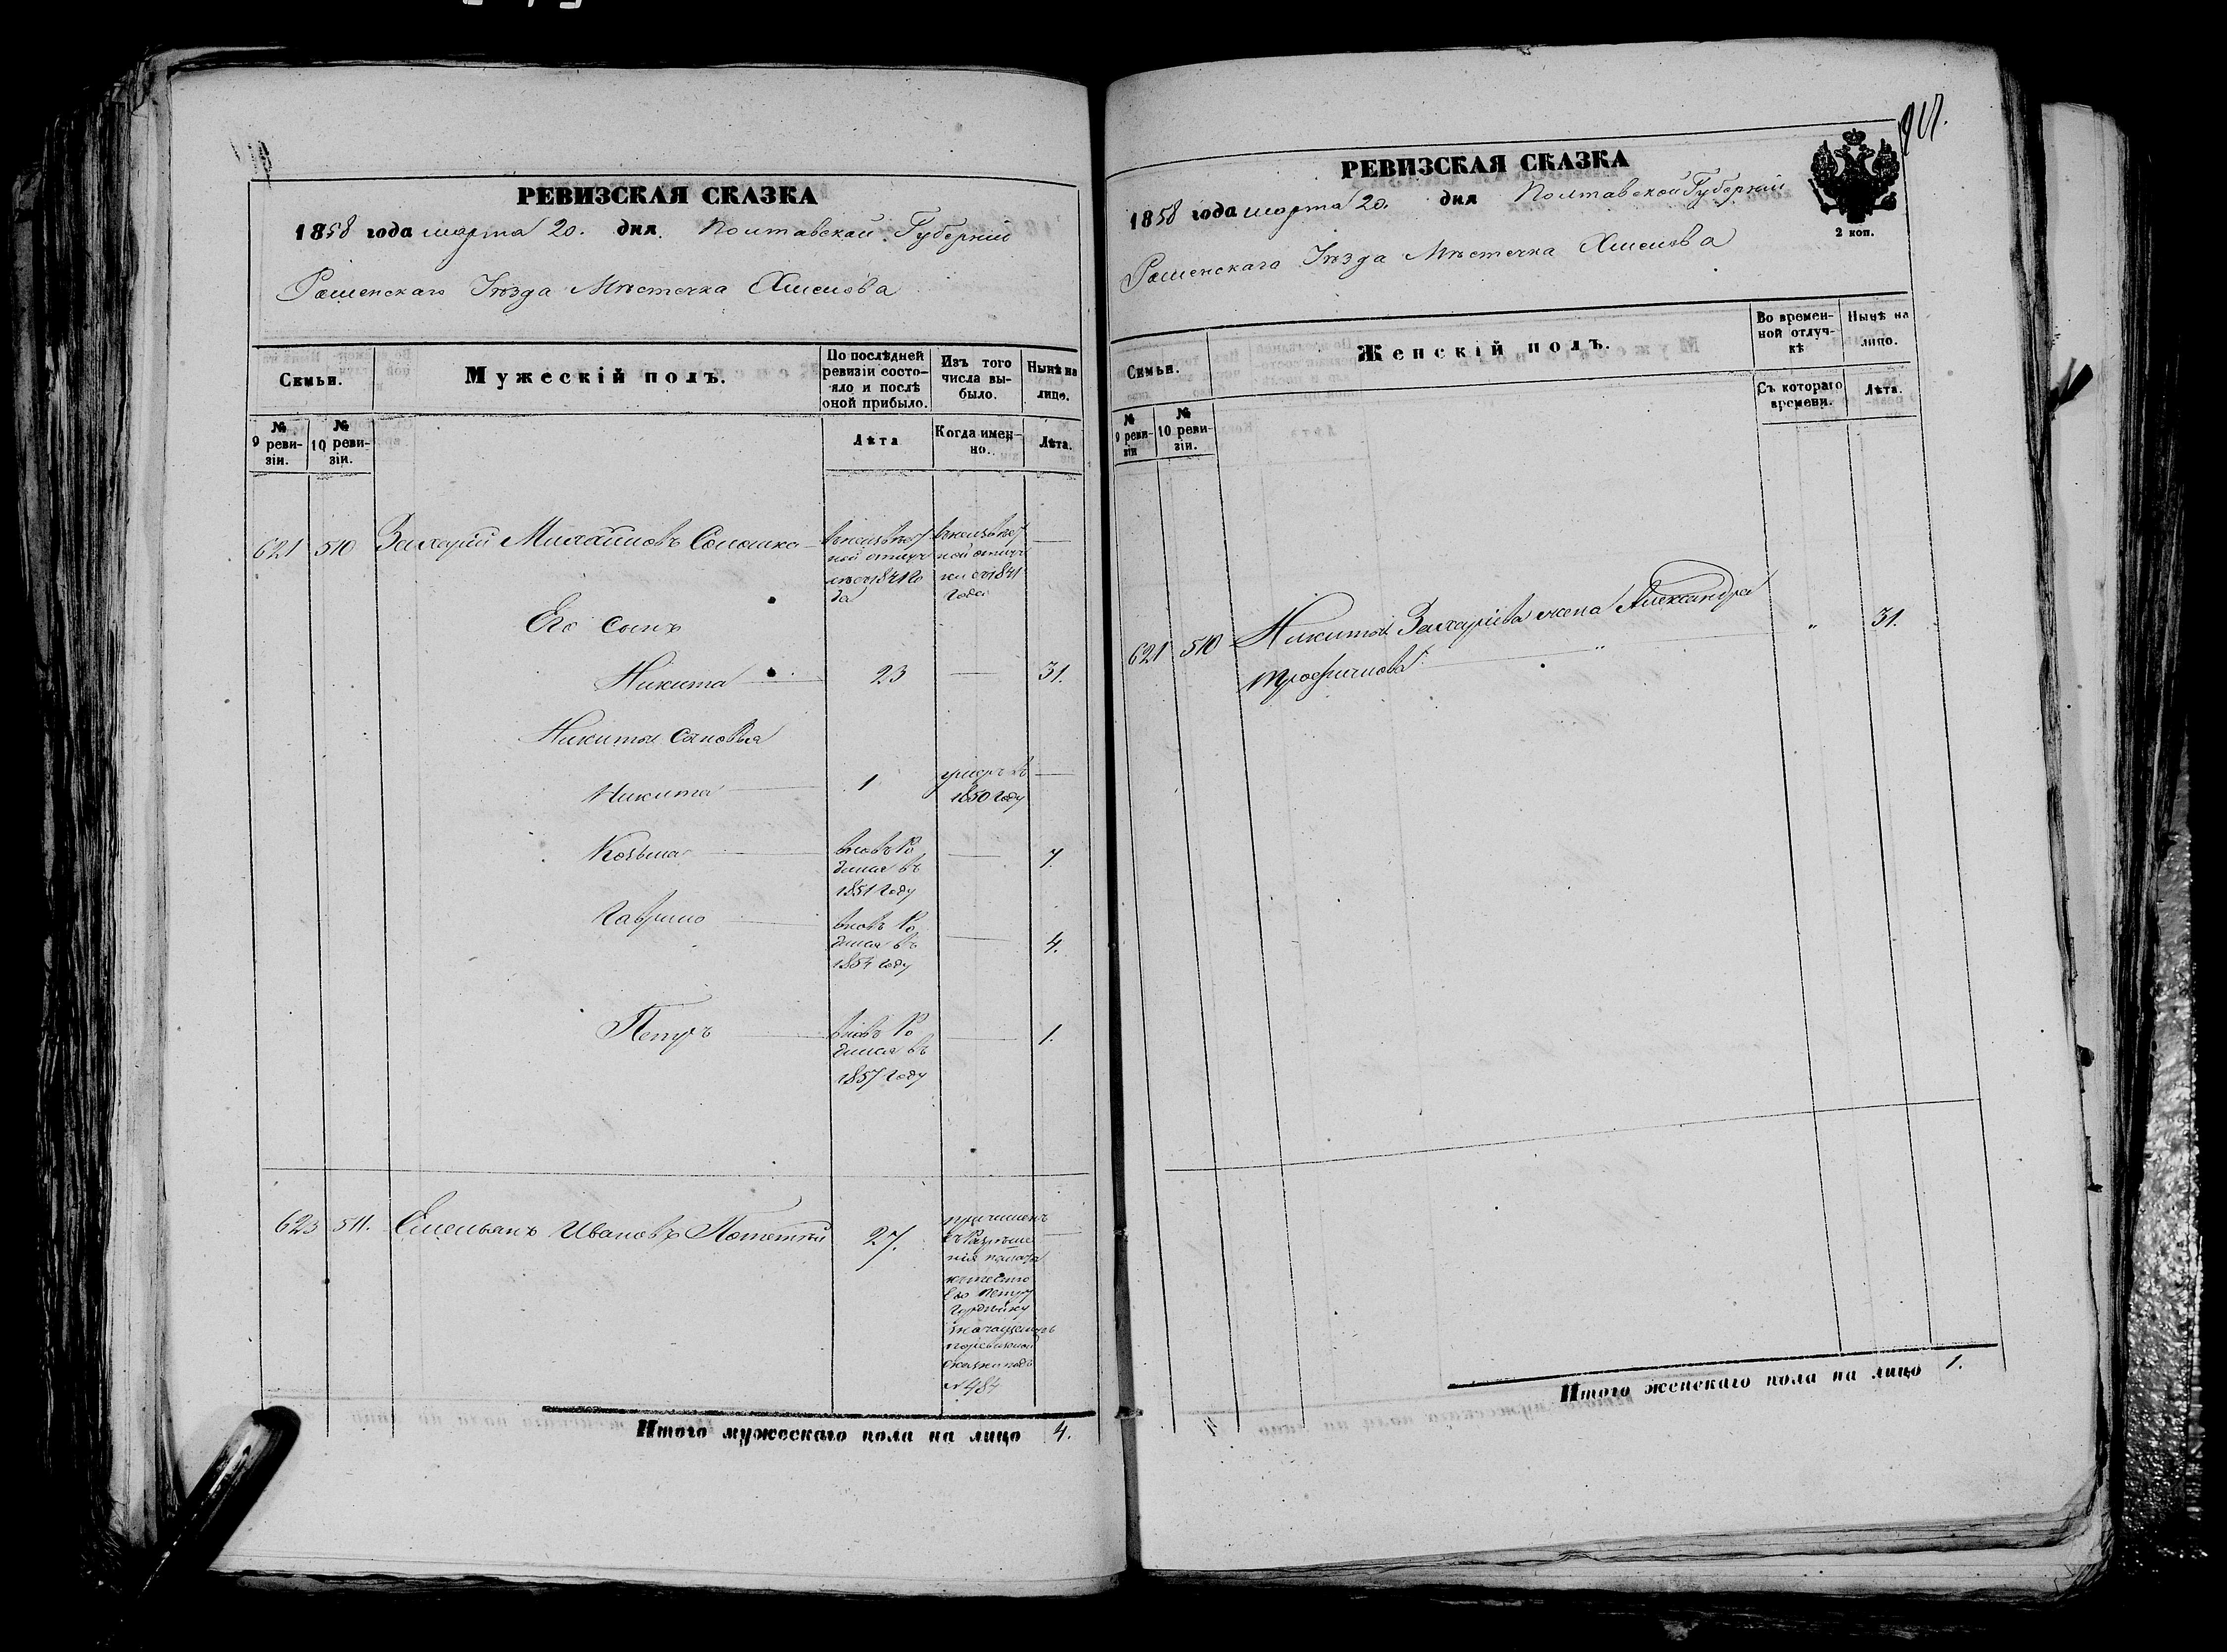 РЕВИЗСКАЯ СКАЗКА
1858 года марта 20. дня. Полтавской Губерніи
Роменскаго Уѣзда Мѣстечка Хмелова
Семьи.
Мужескій полъ.
По послѣдней ревизіи состояло и послѣ оной прибыло.
Изъ того числа выбыло.
Нынѣ на лицо.
№ 9 ревизіи.
№ 10 ревизіи.
Лѣта
Когда именно.
Лѣта.
621 510 Захарій Михайловъ Солошко
въ неизвѣстной отлучкѣ съ 1841 года
въ неизвѣстной отлучки съ 1841 года
—
Его сынъ
Никита 23 — 31.
Никиты сыновья
Никита 1 умеръ въ 1850 году —
Козьма вновь родился въ 1851 году — 7.
Гаврило вновь родился въ 1854 году — 4.
Петръ вновь родился въ 1857 году — 1.
623 511. Емельянъ Ивановъ 27.
причисленъ
къ тестю
его Петру
сказки подъ
№ 484
Итого мужескаго пола на лицо 4.
РЕВИЗСКАЯ СКАЗКА
1858 года марта 20. дня Полтавской Губерніи
Роменскаго Уѣзда Мѣстечка Хмелова
2 коп.
Семьи.
Женскій полъ.
Во временной отлучкѣ
Нынѣ на лицо.
№ 9 ревизіи
№ 10 ревизіи.
Съ котораго времени.
Лѣта.
621 510 Никиты Захаріева жена Александра " 31.
Трофимова "
Итого женскаго пола на лицо 1.